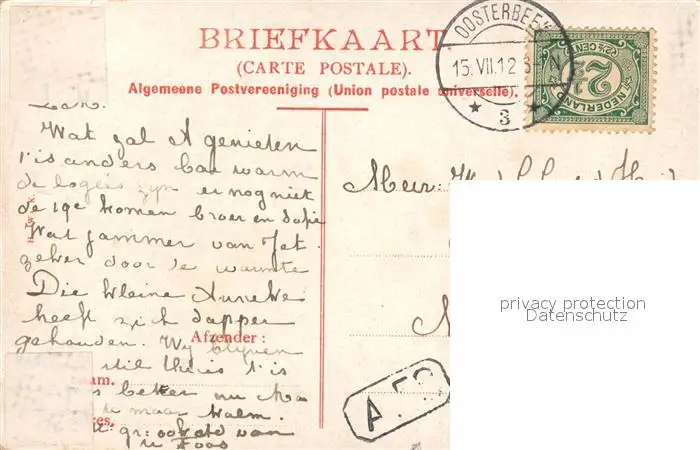 BRIEFKAART
(CARTE POSTALE).
Algemeene Postvereeniging (Union postale universelle).
OOSTERBEEK
15.VII.12 3-
3
2½ CENT
NEDERLAND
2½
Wat zal A genieten
't is anders bar warm
de logees zijn er nog niet
de 19e komen broer en Sofie
Wat jammer van Jet
zeker door de warmte
Die kleine Anneke
heeft zich dapper
gehouden. Wij blijven
Afzender :
stil thuis 't is
am.
beter nu Ma
maar kalm.
res.
gr: ook van
Toos
Meur:
A.
privacy protection
Datenschutz